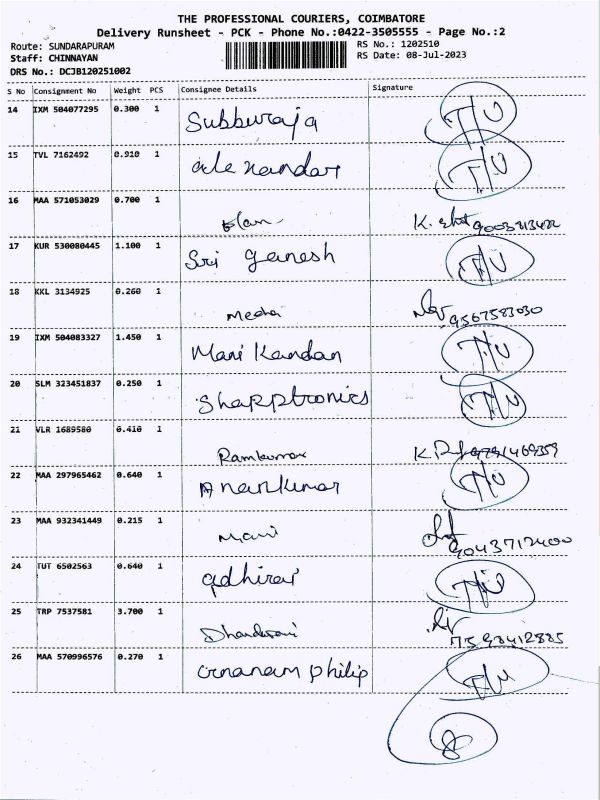 THE PROFESSIONAL COURIERS, COIMBATORE
Delivery Runsheet - PCK - Phone No.:0422-3505555 - Page No.:2
Route: SUNDARAPURAM RS No.: 1202510
Staff: CHINNAYAN RS Date: 08-Jul-2023
DRS No.: DCJB120251002
S No Consignment No Weight PCS Consignee Details Signature
14 IXM 504077295 0.300 1 Subburaja T/U
15 TVL 7162492 0.910 1 T/U
16 MAA 571053029 0.700 1
17 KUR 530080445 1.100 1 Sri ganesh T/U
18 KKL 3134925 0.260 1 9567583030
19 IXM 504083327 1.450 1 Mani Kandan T/U
20 SLM 323451837 0.250 1 Sharptronics T/U
21 VLR 1689580 0.410 1 Ramkumar
22 MAA 297965462 0.640 1 T/U
23 MAA 932341449 0.215 1 Mani 9043712400
24 TUT 6502563 0.640 1 T/U
25 TRP 7537581 3.700 1
26 MAA 570996576 0.270 1 philip T/U
8